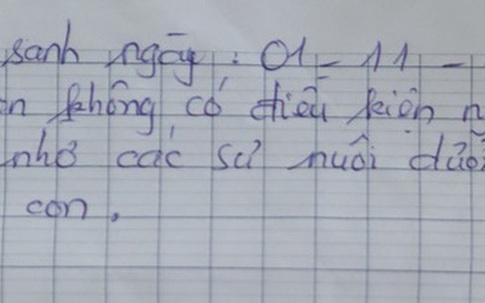 sanh ngày: 01-11-
không có điều kiện
nhờ các sư nuôi
con.